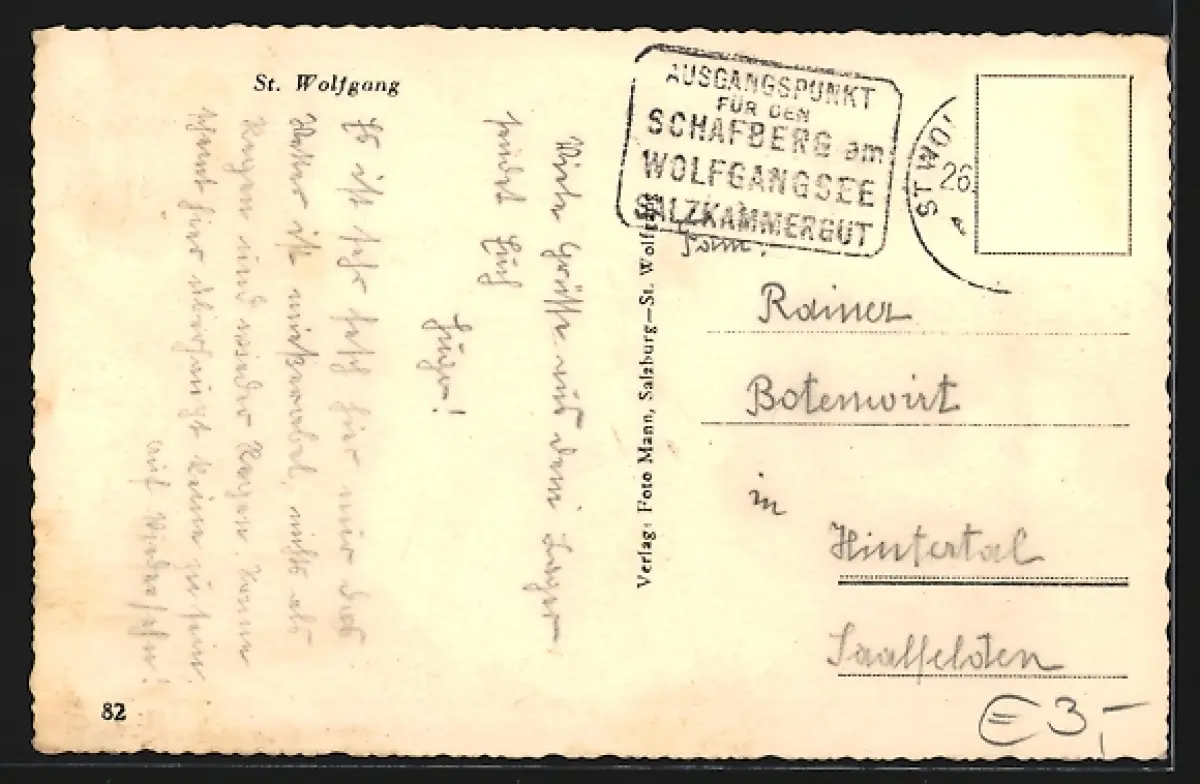 St. Wolfgang
AUSGANGSPUNKT
FÜR DEN
SCHAFBERG am
WOLFGANGSEE
SALZKAMMERGUT
ST WO
26.
Viele Grüsse aus dem Lager
sendet Euch
Es ist sehr fesch hier nur das
Wetter ist miserabel, nichts als
Regen und wieder Regen.
hier überhaupt keine zu sein.
auf Wiedersehn!
82
Verlag: Foto Mann, Salzburg—St. Wolfgang
Fam.
Rainer
Botenwirt
in
Hintertal
Saalfelden
€ 3,-